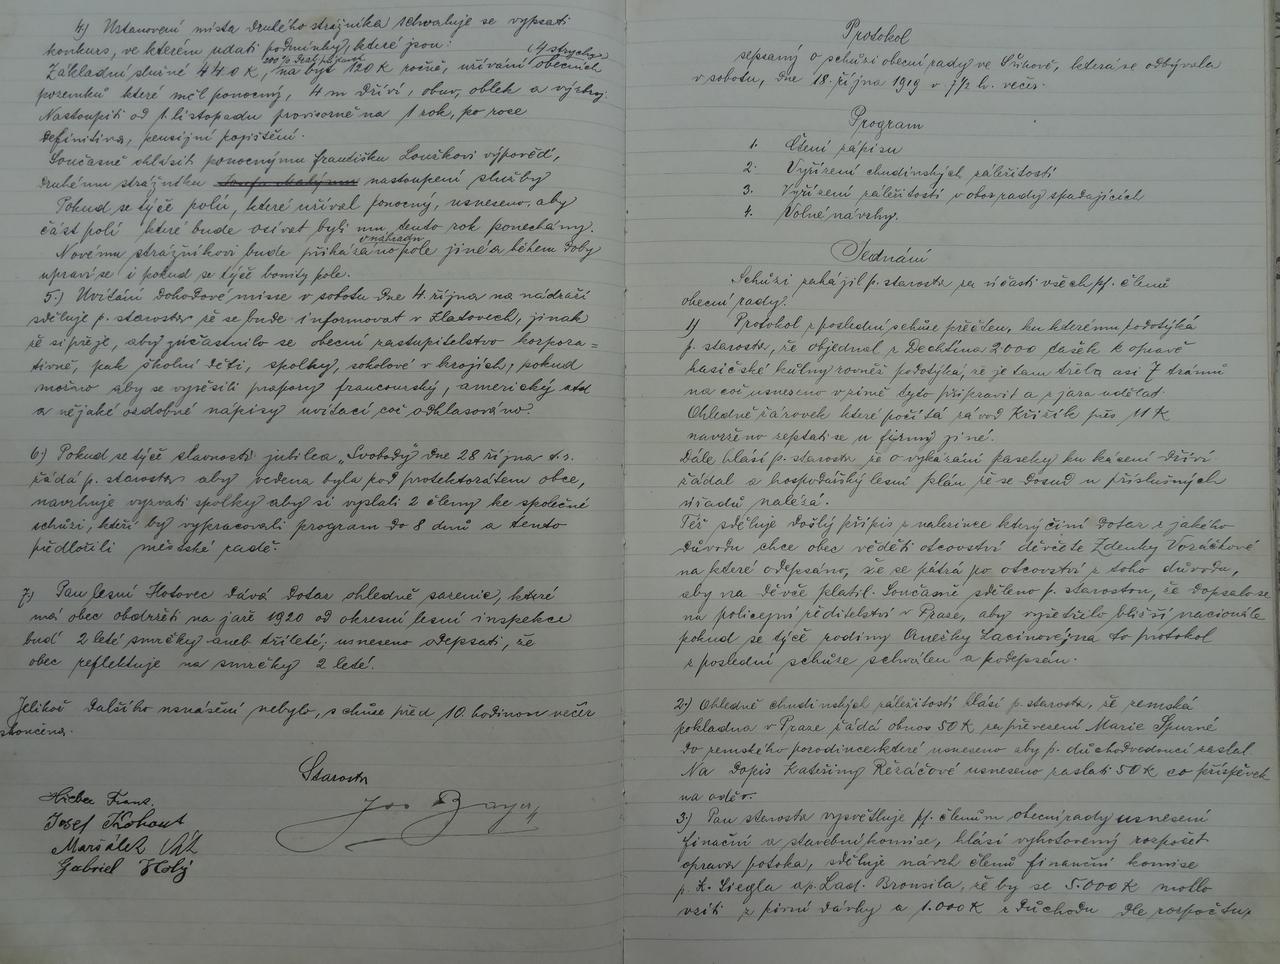 4.) Ustanovení místa druhého strážníka schvaluje se vypsati
konkurs, ve kterém udati podmínky, které jsou:
(4 strychy)
Základní služné 440 K, na byt 120 K ročně, užívání obecních
pozemků které měl ponocný, 4 m dříví, obuv, oblek a výzbroj.
Nastoupiti od 1 listopadu provisorně na 1 rok, po roce
definitiva, pensijní pojištění.
Současně ohlásiti ponocnýmu Františku Louškovi výpověď,
druhému strážníku nastoupení služby
Pokud se týče polí, které užíval ponocný, usneseno, aby
část polí které bude osívat byli mu tento rok ponechány.
v náhradu
Novému strážníkovi bude přikázáno pole jiné a během doby
upraví se i pokud se týče bonity pole.
5.) Uvítání Dohodové misse v sobotu dne 4. října na nádraží
sděluje p. starosta že se bude informovat v Klatovech, jinak
že si přeje, aby zúčastnilo se obecní zastupitelstvo korpora=
tivně, pak školní děti, spolky, sokolové v krojích, pokud
možno aby se vyvěsili prapory francouzský, americký atd
a nějaké ozdobné nápisy uvítací což odhlasováno.
6.) Pokud se týče slavnosti jubilea „Svobody" dne 28 října t.r.
žádá p. starosta aby vedena byla pod protektorátem obce,
navrhuje vyzvati spolky aby si vyslali 2 členy ke společné
schůzi, kteří by vypracovali program do 8 dnů a tento
předložili městské radě.
7.) Pan lesní Hotovec dává dotaz ohledně sazenic, které
má obec obdržeti na jaře 1920 od okresní lesní inspekce
buď 2 leté smrčky aneb tříleté, usneseno odepsati, že
obec reflektuje na smrčky 2 leté.
Jelikož dalšího usnášení nebylo, schůze před 10. hodinou večer
skončena.
Starosta
Franz.
Josef Kohout
Maršálek
Gabriel Holý
Protokol
sepsaný o schůzi obecní rady ve která se odbývala
v sobotu, dne 18. října 1919 v 7½ h. večer.
Program
1. Čtení zápisu
2. Vyřízení chudinských záležitostí
3. Vyřízení záležitostí v obor rady spadajících
4. Volné návrhy.
Jednání
Schůzi zahájil p. starosta za účasti všech pp. členů
obecní rady.
1) Protokol z poslední schůze přečten, ku kterému podotýká
p. starosta, že objednal z Dechtína 2000 tašek k opravě
hasičské kůlny rovněž podotýká, že je tam třeba asi 7 trámů
na což usneseno v zimě tyto připravit a z jara udělat.
Ohledně žárovek které počítá závod Křižík přes 11 K
navrženo zeptati se u firmy jiné.
Dále hlásí p. starosta že o vykázání paseky ku kácení dříví
žádal a hospodářský lesní plán že se dosud u příslušných
úřadů nalézá.
Též sděluje došlý přípis z nalezince který činí dotaz z jakého
důvodu chce obec věděti otcovství děvčete Zdenky Vozáčkové
na které odepsáno, že se pátrá po otcovství z toho důvodu,
aby na děvče platil. Současně sděleno p. starostou, že dopsalo se
na policejní ředitelství v Praze, aby vyšetřilo bližší nacionále
pokud se týče rodiny Anežky Lacinové, na to protokol
z poslední schůze schválen a podepsán.
2.) Ohledně chudinských záležitostí hlásí p. starosta, že zemská
pokladna v Praze žádá obnos 50 K za převezení Marie Spurné
do zemského porodince které usneseno aby p. důchodvedoucí zaslal.
Na dopis Kateřiny Řezáčové usneseno zaslati 50 K co příspěvek
na oděv.
3.) Pan starosta vysvětluje pp. členům obecní rady usnesení
finanční a stavební komise, hlásí vyhotovený rozpočet
oprava potoka, sděluje návrh členů finanční komise
p. K. Siegla a p. Lad. Brousila, že by se 5.000 K mohlo
vzíti z pivní dávky a 1.000 K z důchodu dle rozpočtu,